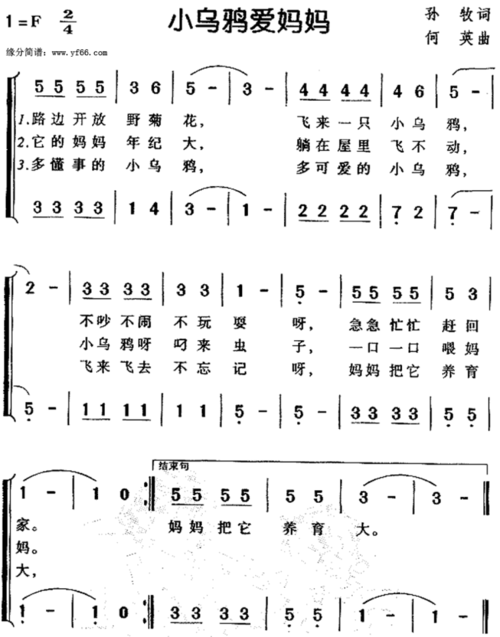 小乌鸦爱妈妈
1=F 2/4
孙 牧词
缘分简谱: www.yf66.com
何 英曲
5 5 5 5 | 3 6 | 5 - | 3 - | 4 4 4 4 | 4 6 | 5 - |
1.路边开放 野菊 花, 飞来一只 小乌 鸦,
2.它的妈妈 年纪 大, 躺在屋里 飞不 动,
3.多懂事的 小乌 鸦, 多可爱的 小乌 鸦,
3 3 3 3 | 1 4 | 3 - | 1 - | 2 2 2 2 | 7 2 | 7 - |
2 - | 3 3 3 3 | 3 3 | 1 - | 5 - | 5 5 5 5 | 5 3 |
不吵不闹 不玩 耍 呀, 急急忙忙 赶回
小乌鸦呀 叼来 虫 子, 一口一口 喂妈
飞来飞去 不忘 记 呀, 妈妈把它 养育
5 - | 1 1 1 1 | 1 1 | 5 - | 5 - | 3 3 3 3 | 5 5 |
结束句
1 - | 1 0 :‖ 5 5 5 5 | 5 5 | 3 - | 3 - ‖
家。 妈妈把它 养育 大。
妈。
大,
1 - | 1 0 :‖ 3 3 3 3 | 5 5 | 1 - | 1 - ‖